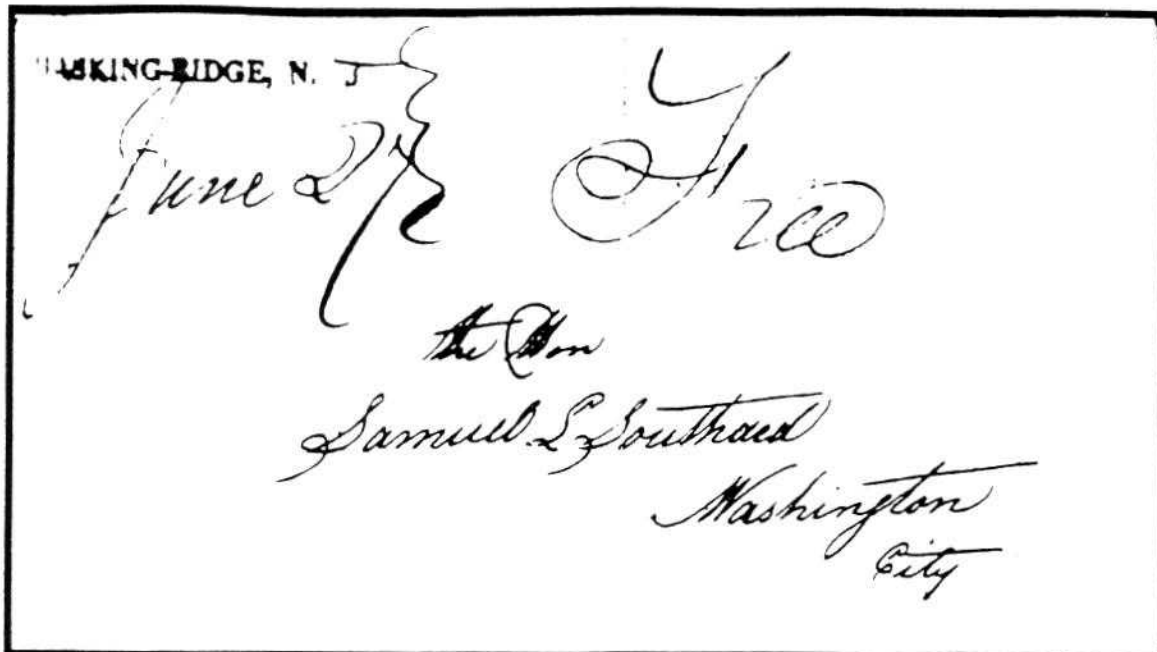 BASKING-RIDGE, N. J
June 27 Free
the Hon
Samuel L Southard
Washington
City